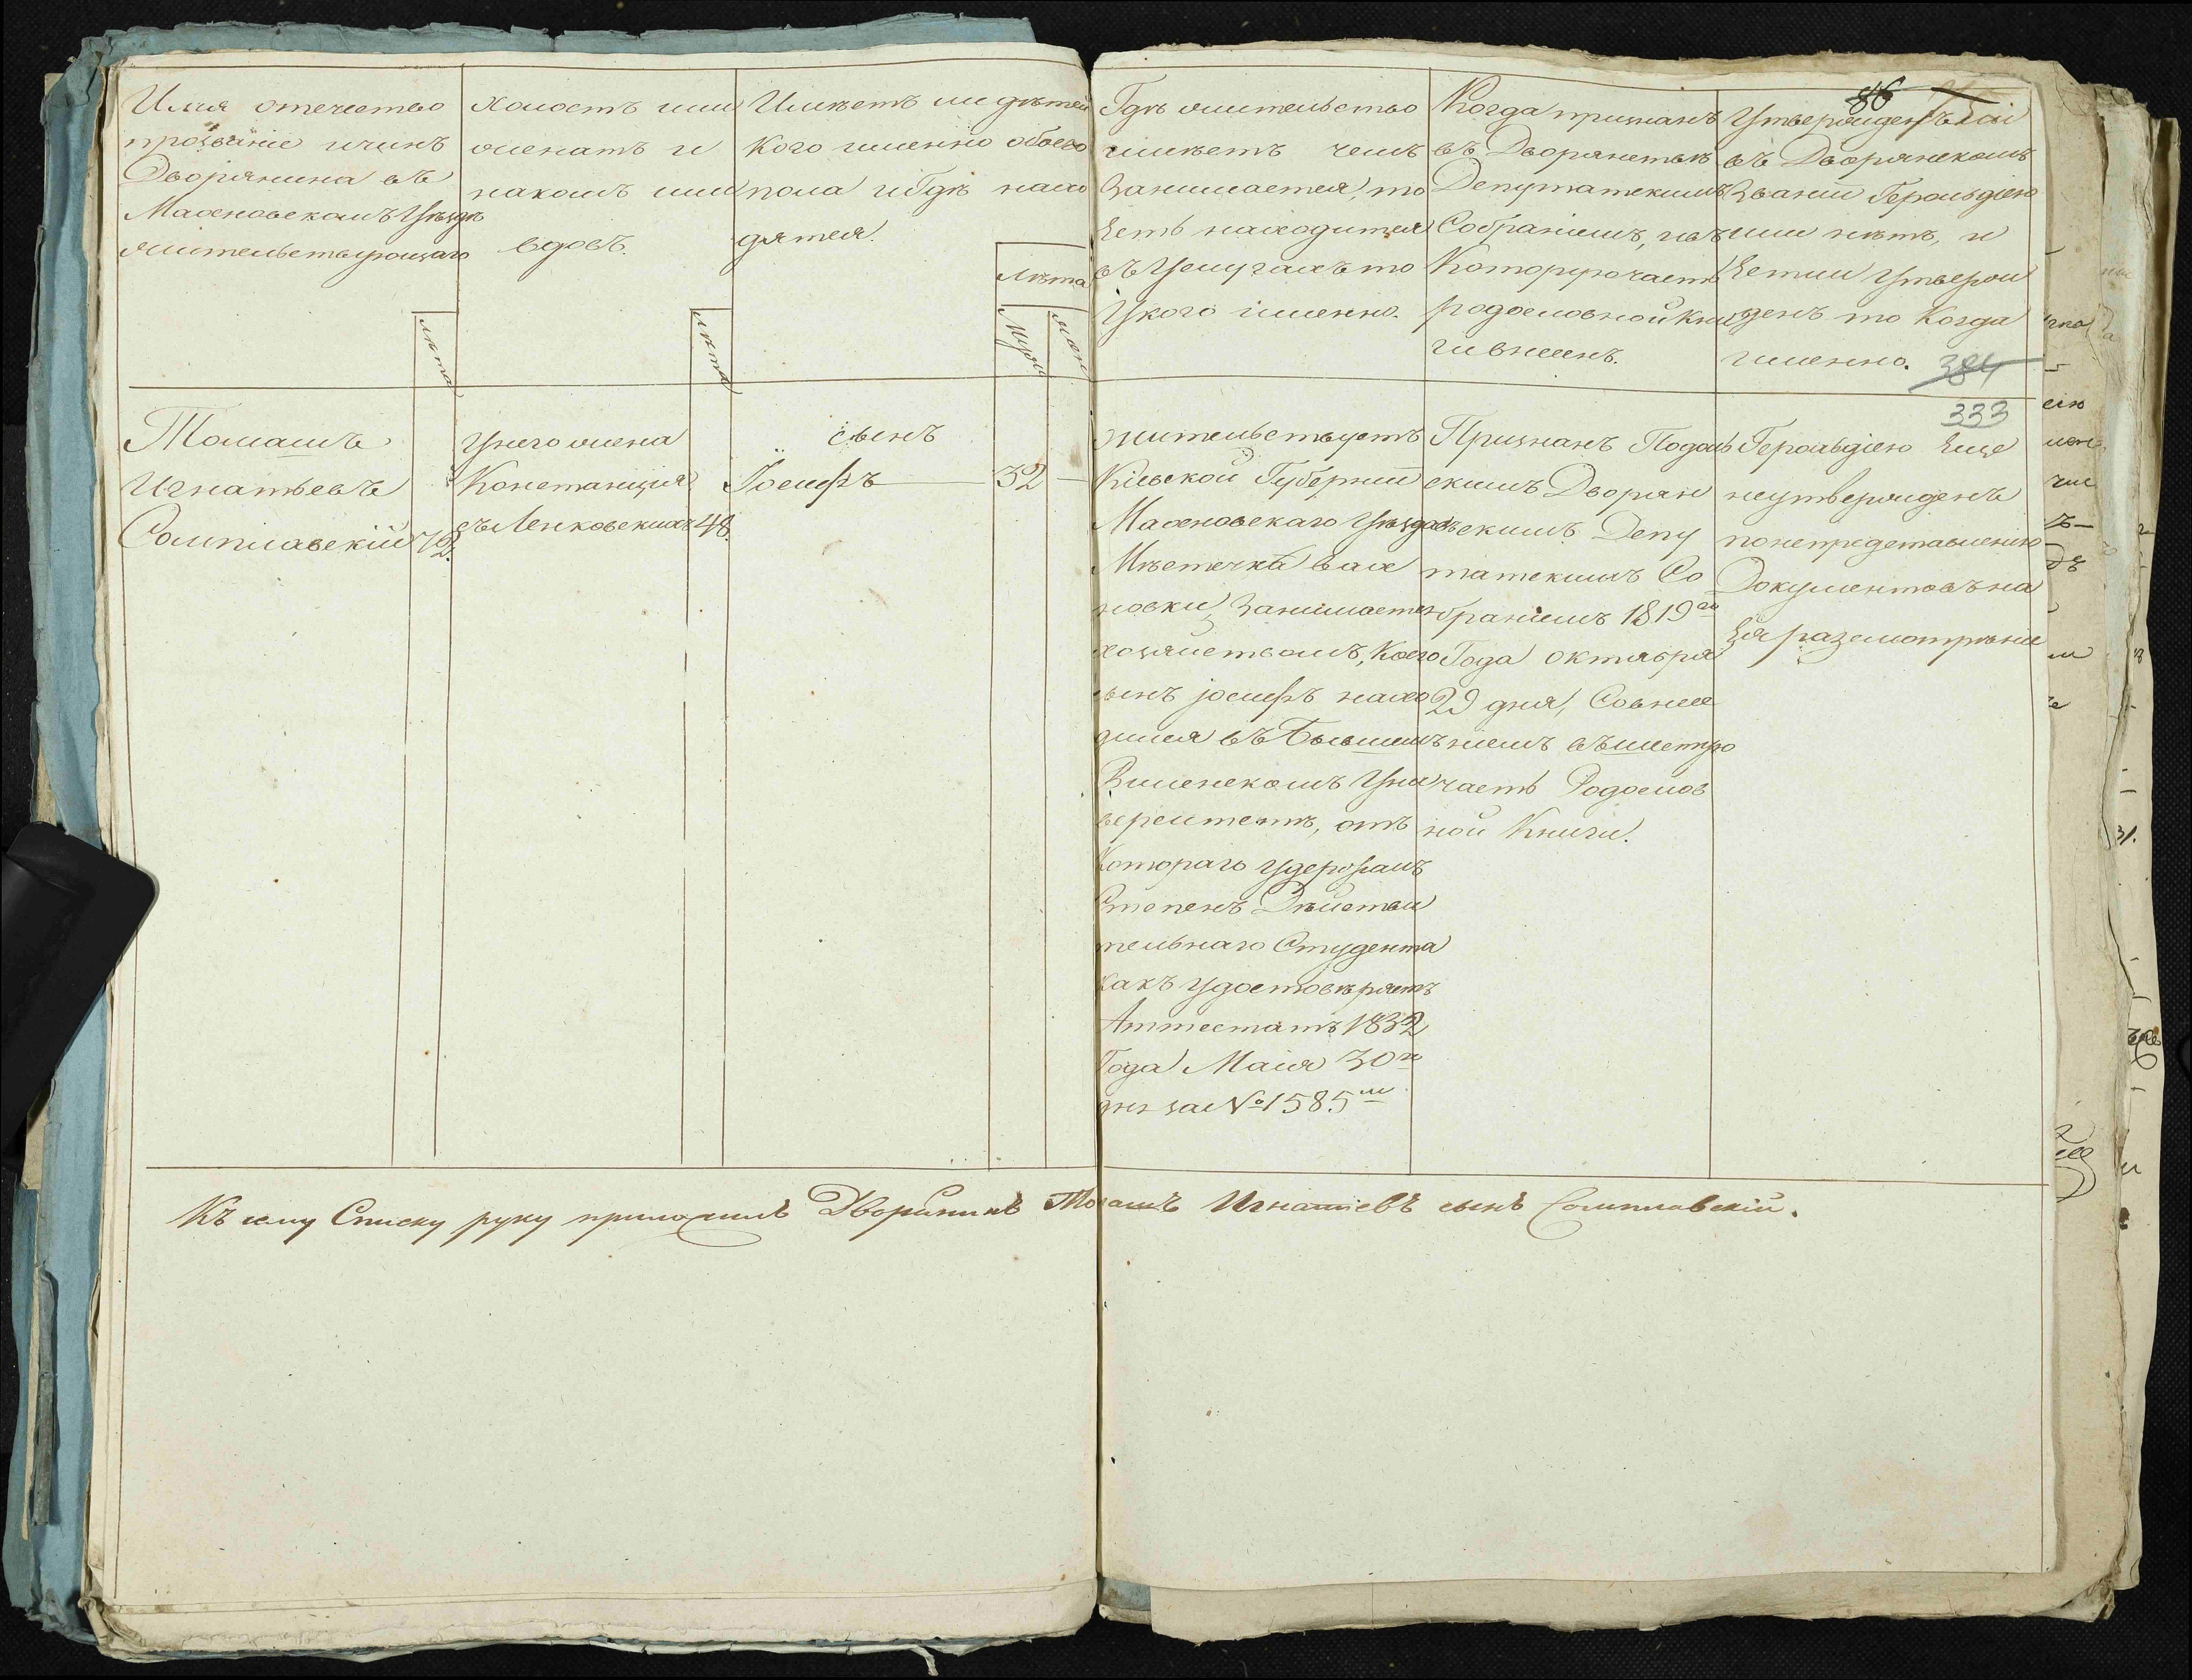 Имя отечество
прозваніе и чинъ
Дворянина въ
Махновскомъ Уѣздѣ
жительствующаго
лѣта
холостъ или
женатъ и
на комъ или
вдовъ.
лѣта
Имѣетъ ли дѣтей
кого именно обоего
пола и Гдѣ нахо
дятся.
лѣта
Муж
жен
Гдѣ жительство
имѣетъ чемъ
занимается, то
Есть находится
въ Услугахъ то
У кого именно.
Когда признанъ
въ Дворянствѣ
Депутатскимъ
Собраніемъ, и въ
Которую часть
родословной Кни
ги внесенъ.
86
Утвержденъ ли
въ Дворянскомъ
Званіи Герольдіею
или нѣтъ, и
Если Утверж
денъ то Когда
именно.
384
333
Томашъ
Игнатьевъ
Сомплавскій
72.
У него жена
Констанція
съ Ленковскихъ
48.
сынъ
Іосифъ
32 —
жительствуетъ
Кіевской Губерніи
Махновскаго Уѣзда
Мѣстечка Вах
новки, Занимается
хозяйствомъ, Коего
сынъ іосифъ нахо
дился въ Бывшемъ
Виленскомъ Уни
верситетѣ, отъ
Котораго Удержалъ
Степень Дѣйстви
тельнаго Студента
какъ Удостовѣряетъ
Аттестатъ 1832
Года Маія 30го
дня за № 1585м
Признанъ Подоль
скимъ Дворян
скимъ Депу
татскимъ Со
браніемъ 1819го
Года октября
29 дня, Со внесе
ніемъ въ шестую
часть Родослов
ной Книги.
Герольдіею Еще
неутвержденъ
по непредставленію
Документовъ на
Ея разсмотрѣніе
Къ сему Списку руку приложилъ Дворянинъ Томашъ Игнатіевъ сынъ Сомплавскій.